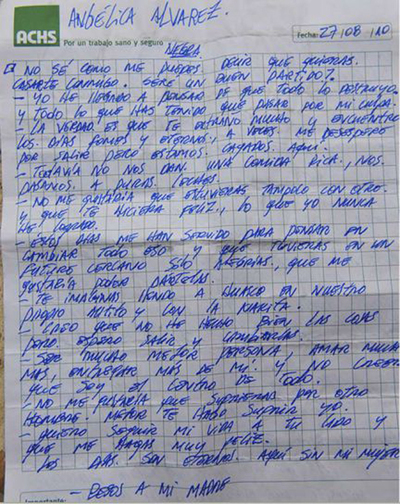 ANGÉLICA ALVAREZ.
ACHS
Por un trabajo sano y seguro
Fecha: 27/08/10
NEGRA.
NO SÉ COMO ME PUEDES DECIR QUE QUIERAS
CASARTE CONMIGO. SERE UN BUEN PARTIDO?.
- YO HE LLEGADO A PENSAR DE QUE TODO LO DESTRUYO
Y TODO LO QUE HAS TENIDO QUE PASAR POR MI CULPA.
- LA VERDAD ES QUE TE EXTRAÑO MUCHO Y ENCUENTRO
LOS DIAS FOMES Y ETERNOS, A VECES ME DESESPERO
POR SALIR PERO ESTAMOS CAGADOS AQUI.
- TODAVIA NO NOS DAN UNA COMIDA RICA, NOS
PASAMOS A PURAS
- NO ME GUSTARIA QUE ESTUVIERAS TAMPOCO CON OTRO
Y QUE TE HICIERA FELIZ, LO QUE YO NUNCA
HE LOGRADO.
- ESTOS DIAS ME HAN SERVIDO PARA PENSAR EN
CAMBIAR TODO ESO Y QUE TUVIERAS EN UN
FUTURO CERCANO SOLO ALEGRIAS, QUE ME
GUSTARIA PODER DARTELAS.
- TE IMAGINAS YENDO A HUASCO EN NUESTRO
PROPIO AUTITO Y CON LA ÑARITA.
- CREO QUE NO HE HECHO BIEN LAS COSAS
PERO ESPERO SALIR Y CAMBIARLAS.
- SER MUCHO MEJOR PERSONA, AMAR MUCHO
MAS, ENTREGAR MAS DE MI Y NO CREER
QUE SOY EL CENTRO DE TODO.
- NO ME GUSTARIA QUE SUFRIERAS POR OTRO
HOMBRE. MEJOR TE HAGO SUFRIR YO.
- QUIERO SEGUIR MI VIDA A TU LADO Y
QUE ME HAGAS MUY FELIZ.
- LOS DIAS SON ETERNOS AQUI SIN MI MUJER
- BESOS A MI MADRE
Importante: